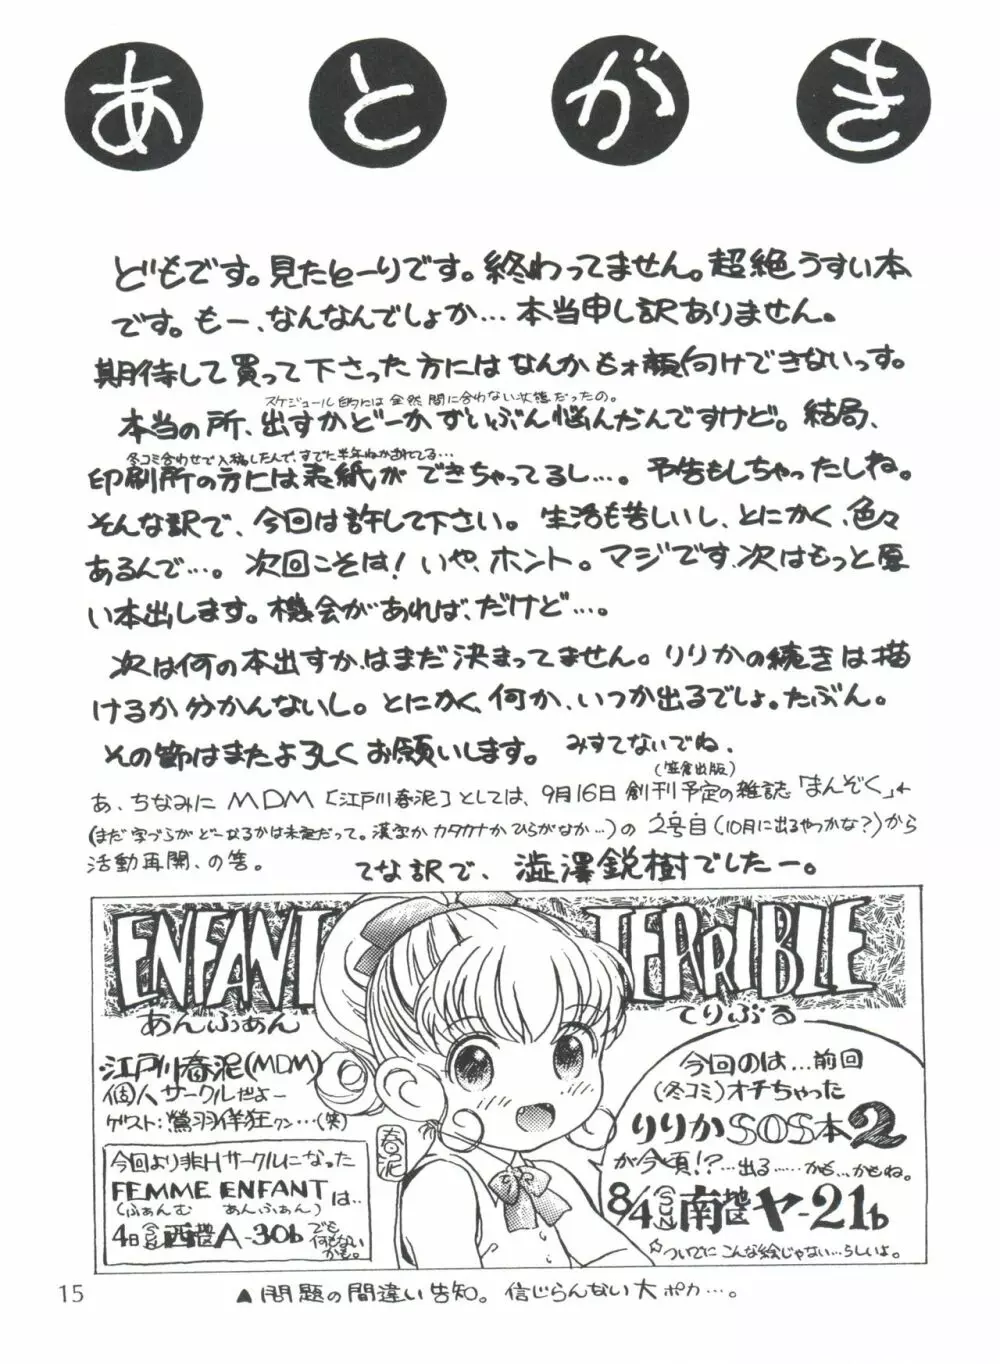 あとがき
どもです。見たとーりです。終わってません。超絶うすい本
です。もー、なんなんでしょか…本当申し訳ありません。
期待して買って下さった方にはなんかもォ顔向けできないっす。
スケジュール的には全然間に合わない状態だったの。
本当の所、出すかどーかずいぶん悩んだんですけど。結局、
冬コミ合わせで入稿したんで、すでに半年ねかされてる…
印刷所の方には表紙ができちゃってるし…。予告もしちゃったしね。
そんな訳で、今回は許して下さい。生活も苦しいし、とにかく、色々
あるんで…。次回こそは!いや、ホント。マジです、次はもっと厚
い本出します。機会があれば、だけど…。
次は何の本出すか、はまだ決まってません。りりかの続きは描
けるか分かんないし。とにかく、何か、いつか出るでしょ。たぶん。
その節はまたよろしくお願いします。みすてないでね、
(笠倉出版)
あ、ちなみにMDM[江戸川春泥]としては、9月16日創刊予定の雑誌「まんぞく」
(まだ字づらがどーなるかは未定だって。漢字かカタカナかひらがなか…)の2号目(10月に出るやつかな?)から
活動再開、の筈。
てな訳で、澁澤鋭樹でしたー。
ENFANT TERRIBLE
あんふぁん てりぶる
江戸川春泥(MDM)
個人サークルだよー
ゲスト:鶯羽佯狂クン…(笑)
今回より非Hサークルになった
FEMME ENFANTは..
(ふぁんむ あんふぁん)
4日(SUN)西地区A-30b でも何もないかも。
春泥
今回のは…前回
(冬コミ)オチちゃった
りりかSOS本2
が今頃!?…出る……かも…かもね。
8/4(SUN)南地区ヤ-21b
☆ついでにこんな絵じゃない…らしいよ。
▲問題の間違い告知。信じらんない大ポカ…。
15